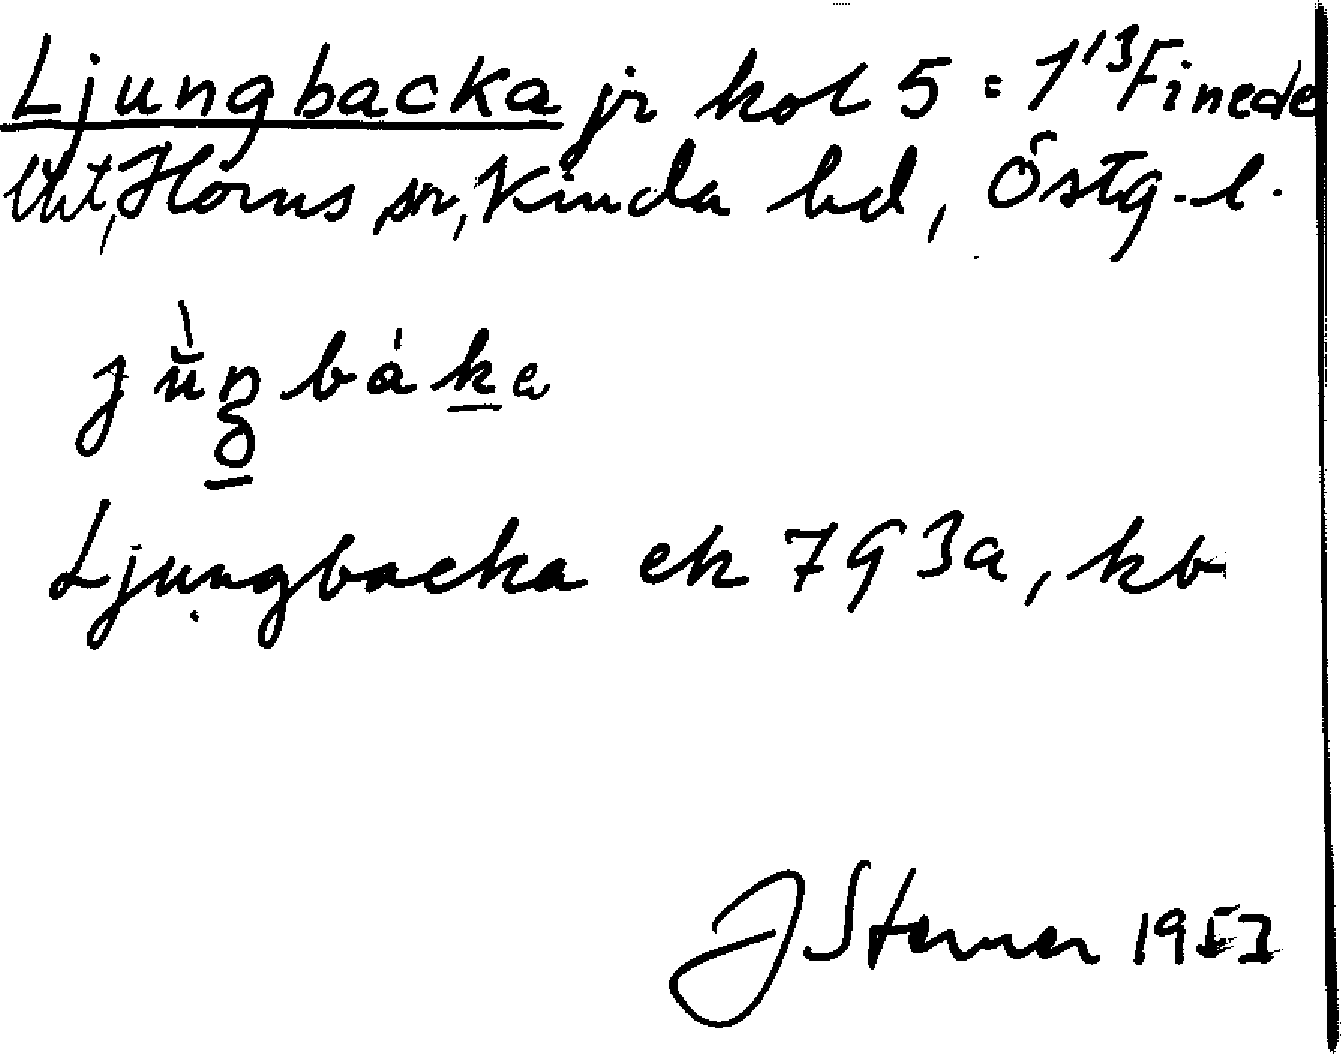 Ljungbacka jr kol 5 : 1¹³ Finede
Utvt, Horns sn, Kinda hd, Östg. l.
jùŋbáka
Ljungbacka ek 793a, kb
J Sterner 1953